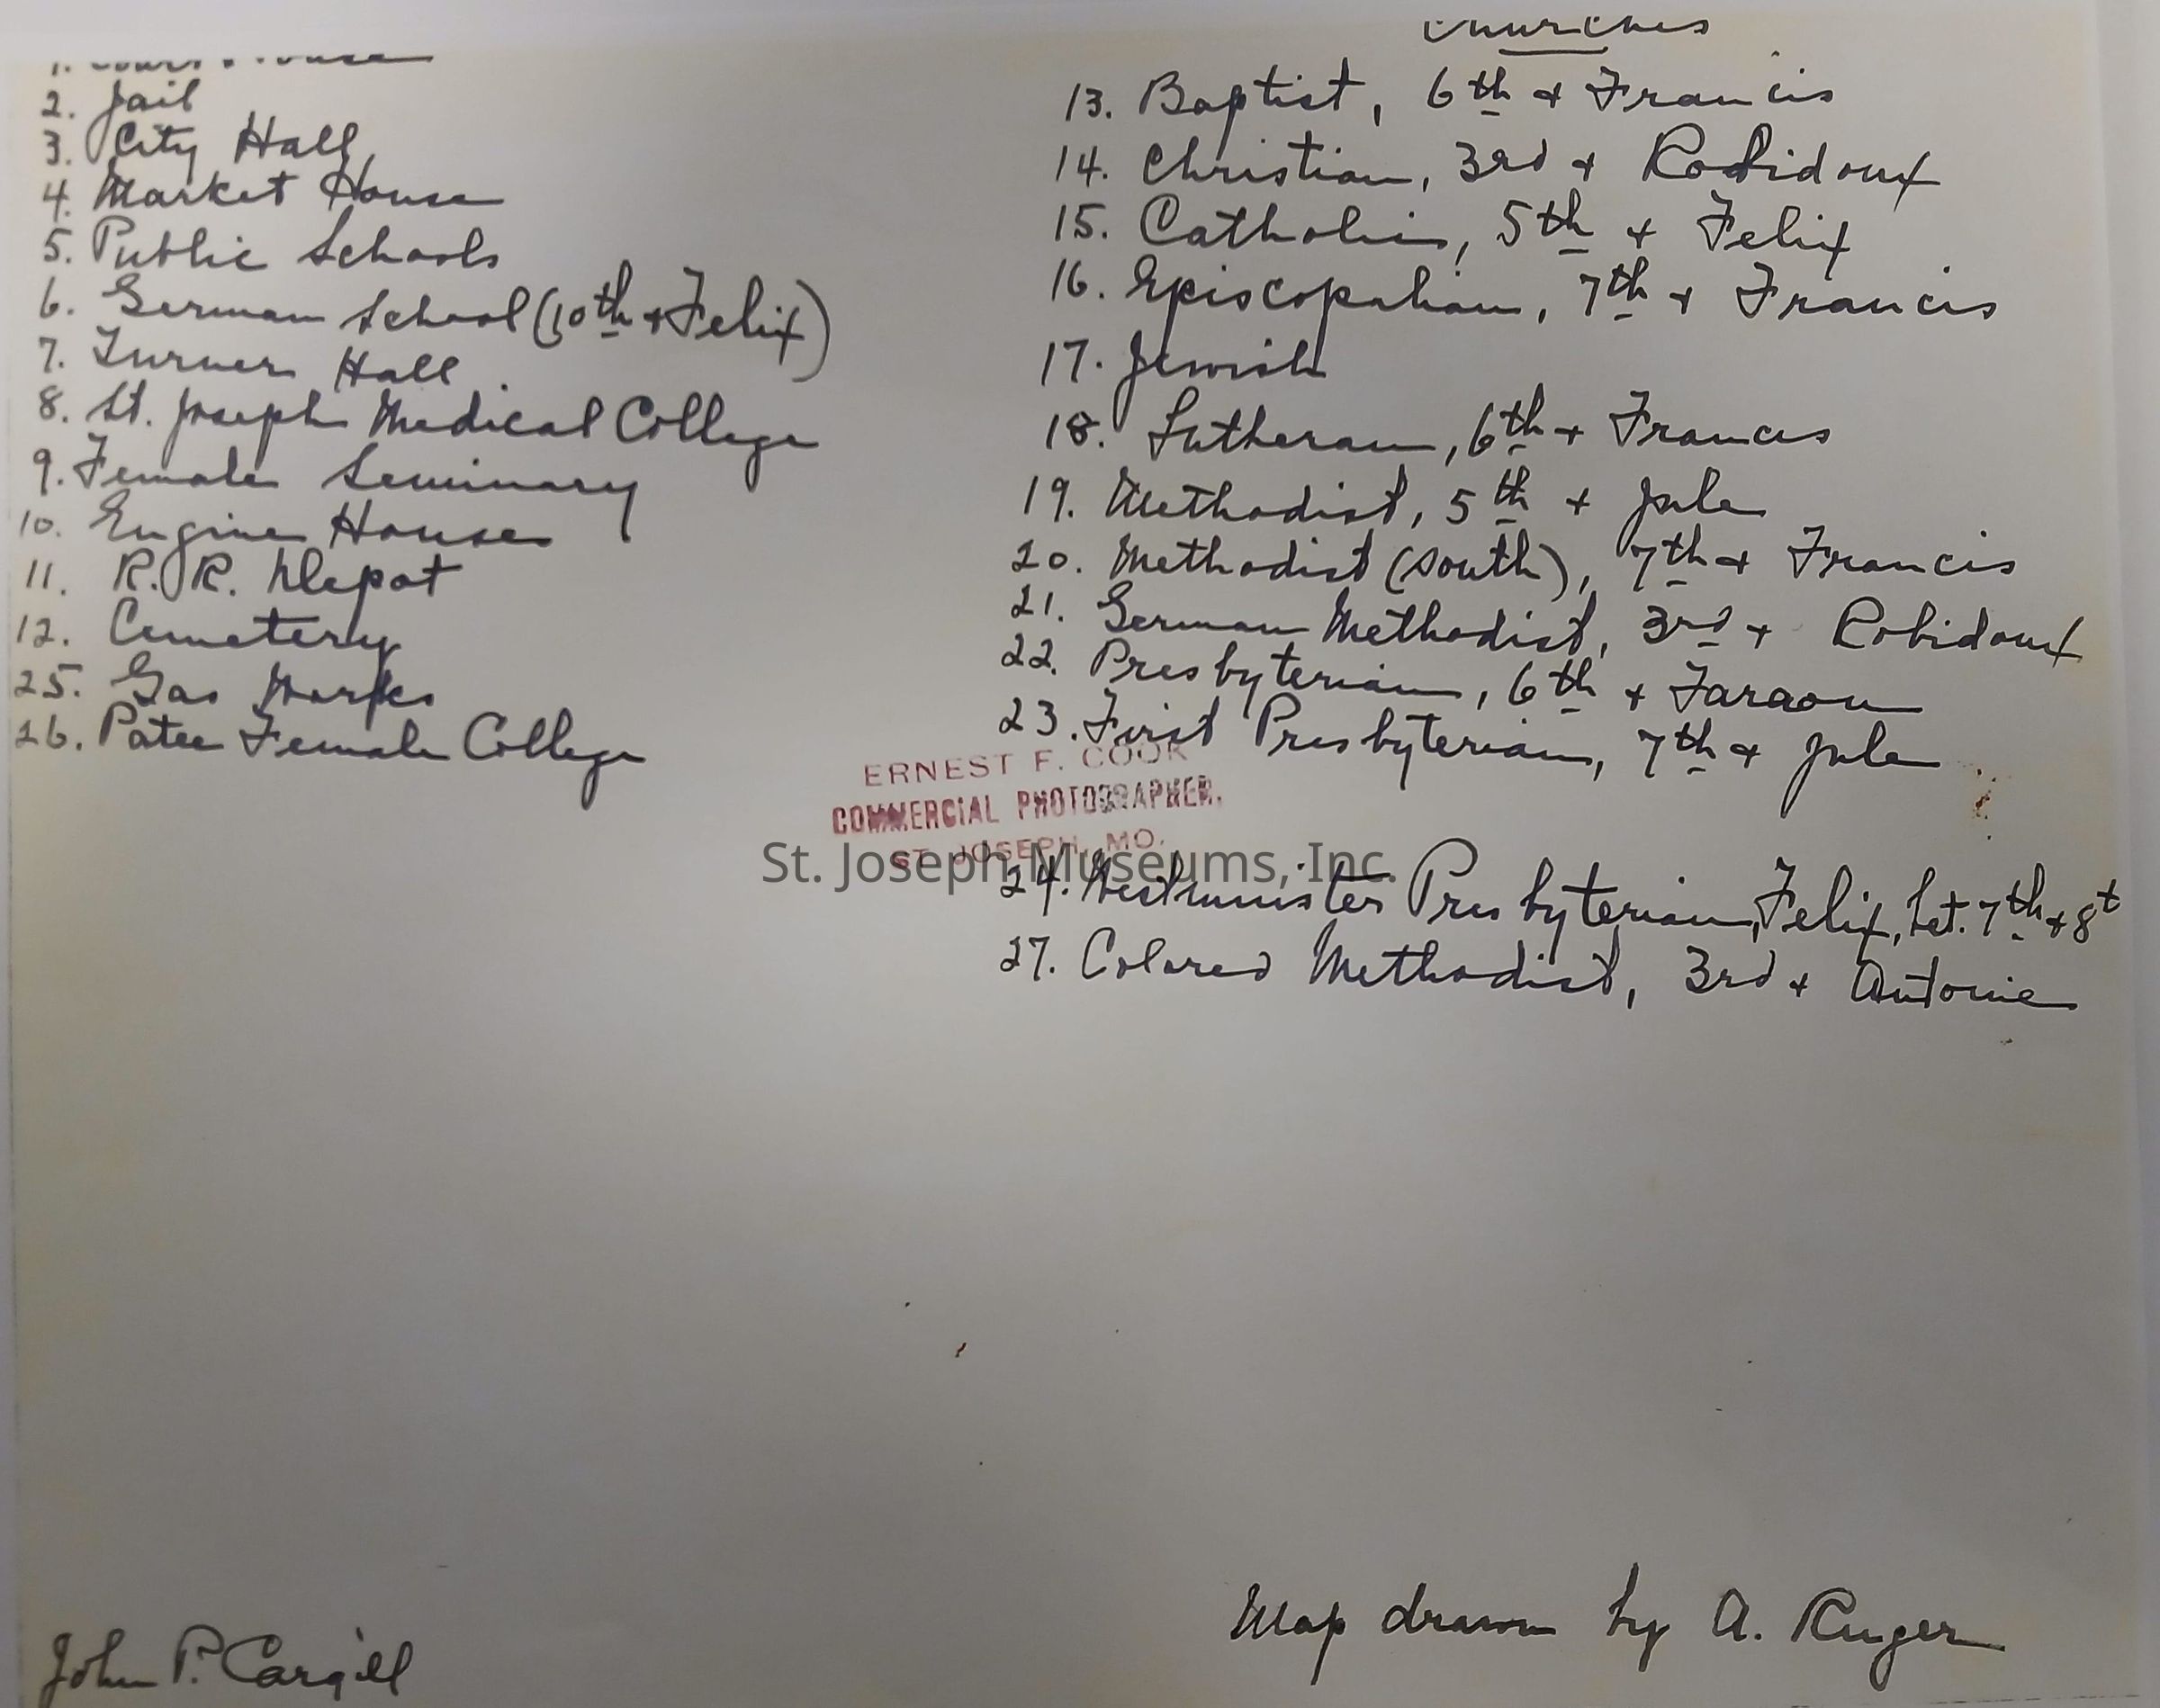 1. Court House
2. Jail
3. City Hall
4. Market House
5. Public Schools
6. German School (10th + Felix)
7. Turner Hall
8. St. Joseph Medical College
9. Female Seminary
10. Engine House
11. R.R. Depot
12. Cemetery
25. Gas Works
26. Patee Female College
Churches
13. Baptist, 6th + Francis
14. Christian, 3rd + Robidoux
15. Catholic, 5th + Felix
16. Episcopalian, 7th + Francis
17. Jewish
18. Lutheran, 6th + Francis
19. Methodist, 5th + Jule
20. Methodist (South), 7th + Francis
21. German Methodist, 3rd + Robidoux
22. Presbyterian, 6th + Faraon
23. First Presbyterian, 7th + Jule
ERNEST F. COOK
COMMERCIAL PHOTOGRAPHER.
ST. JOSEPH, MO.
St. Joseph Museums, Inc.
24. Westminister Presbyterian, Felix, bet. 7th + 8t
27. Colored Methodist, 3rd + Antoine
John P. Cargill
Map drawn by A. Ruger